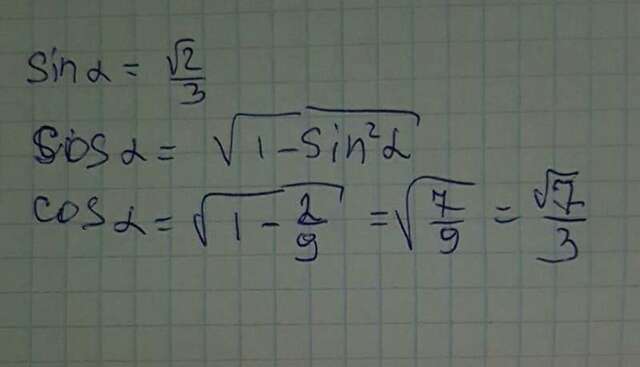 sin α = √2/3
cos α = √(1 - sin²α)
cos α = √(1 - 2/9) = √(7/9) = √7/3